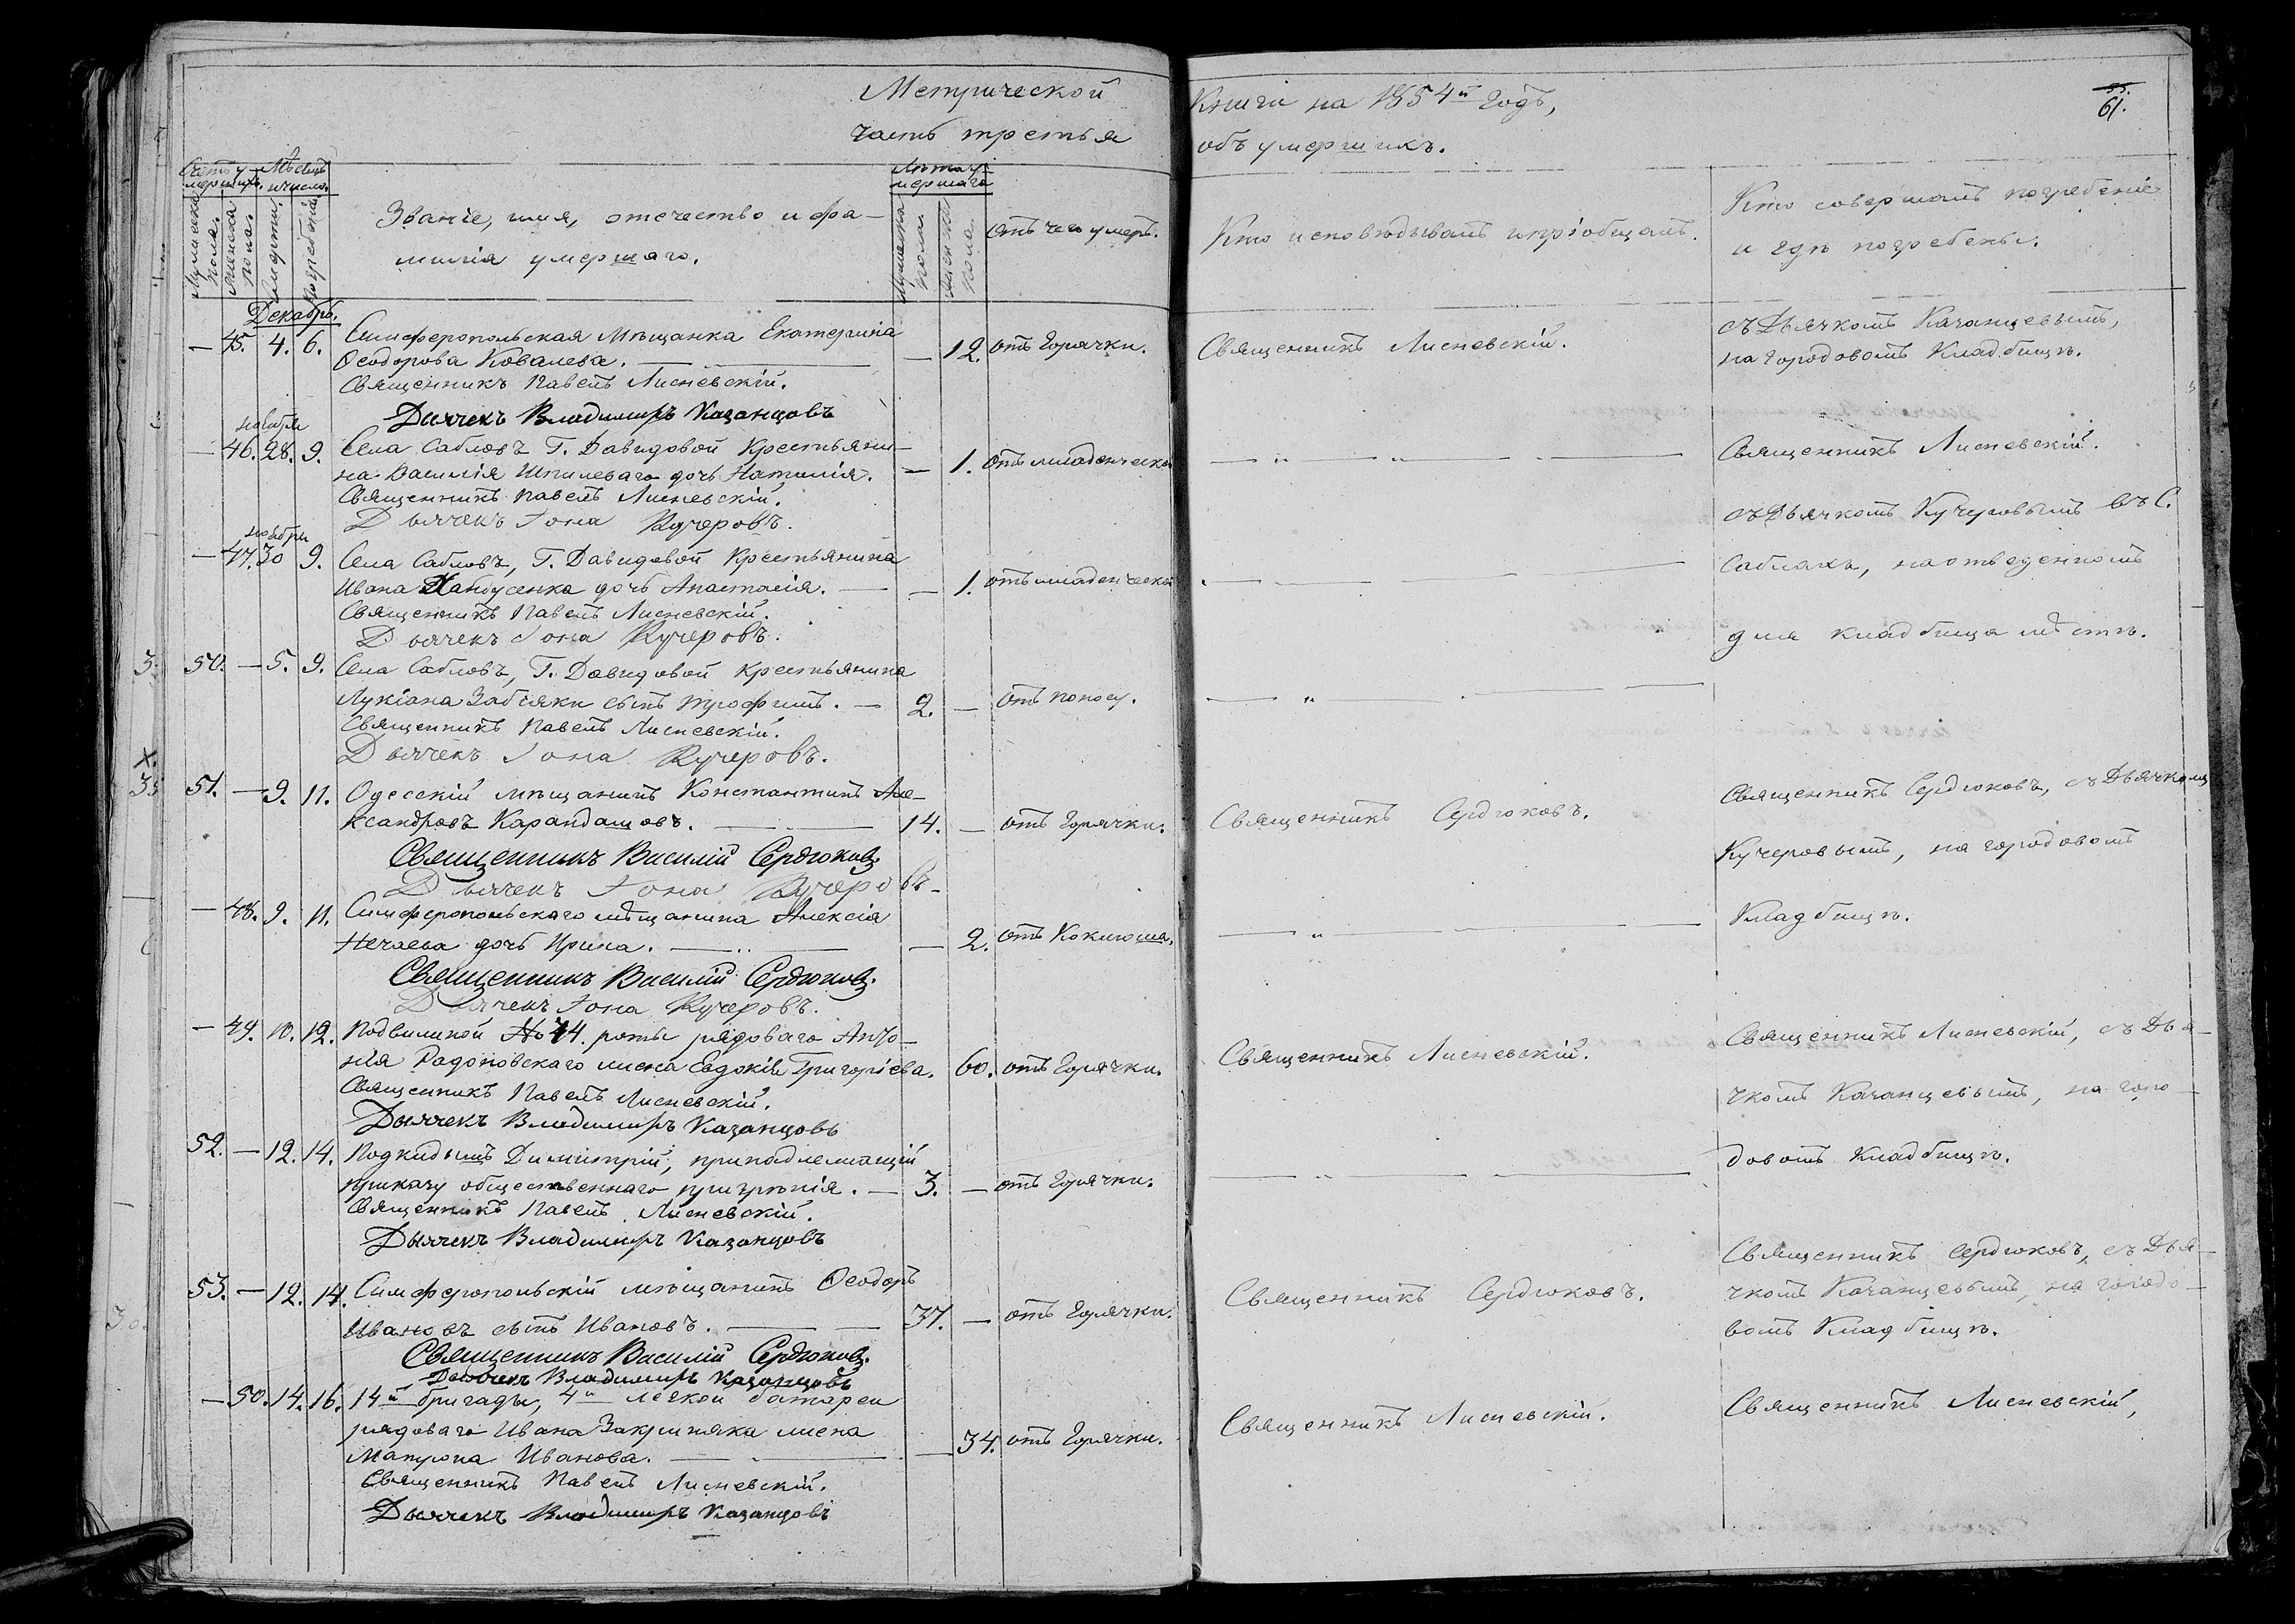 Метрической
часть третья
Книги на 1854й Годъ,
объ умершихъ.
55.
61.
Счетъ у-
мершихъ.
Мѣсяцъ
и число.
Мужеска
пола.
Женска
пола.
Смерти.
Погребенія.
Званіе, имя, отечество и фа-
милія умершаго.
Лѣта у-
мершаго
Мужеска
пола.
Женска
пола.
Отъ чего умеръ.
Кто исповѣдывалъ и пріобщалъ.
Кто совершалъ погребеніе
и гдѣ погребены.
Декабрь.
— 45. 4. 6. Симферопольская Мѣщанка Екатерина
Ѳеодорова Ковалева. — 12. отъ Горячки.
Священникъ Павелъ Лисневскій.
Дьячекъ Владимиръ Казанцовъ
Священникъ Лисневскій.
съ Дьячкомъ Казанцевымъ,
на городовомъ Кладбищѣ.
ноября
— 46. 28. 9. Села Сабловъ Г. Давидовой Крестьяни-
на Василія Шпилеваго дочь Наталія. — 1. отъ младенческой
Священникъ Павелъ Лисневскій.
Дьячекъ Іона Кучеровъ.
Священникъ Лисневскій.
съ Дьячкомъ Кучеровымъ въ С.
ноября
— 47. 30 9. Села Сабловъ, Г. Давидовой Крестьянина
Ивана дочь Анастасія. — 1. отъ младенческой
Священникъ Павелъ Лисневскій.
Дьячекъ Іона Кучеровъ.
Саблахъ, на отведенномъ
для кладбища мѣстѣ.
3. 50. — 5. 9. Села Сабловъ, Г. Давидовой Крестьянина
Лукіана Забіяки сынъ Трофимъ. — 2. — отъ поносу.
Священникъ Павелъ Лисневскій.
Дьячекъ Іона Кучеровъ.
х.
35 51. — 9. 11. Одесскій мѣщанинъ Константинъ Але-
ксандровъ Карандашовъ. 14. — отъ Горячки.
Священникъ Василій Сердюковъ.
Дьячекъ Іона Кучеровъ
Священникъ Сердюковъ.
Священникъ Сердюковъ, съ Дьячкомъ
Кучеровымъ, на городовомъ
Кладбищѣ.
— 48. 9. 11. Симферопольскаго мѣщанина Алексія
Нечаева дочь Ирина. — 2. отъ Коклюша.
Священникъ Василій Сердюковъ.
Дьячекъ Іона Кучеровъ.
— 49. 10. 12. Подвижной № 14. роты рядоваго Анто-
нія Радоновскаго жена Евдокія Григоріева. 60. отъ Горячки.
Священникъ Павелъ Лисневскій.
Дьячекъ Владимиръ Казанцовъ
Священникъ Лисневскій.
Священникъ Лисневскій, съ Дья-
чкомъ Казанцевымъ, на горо-
довомъ Кладбищѣ.
52. — 12. 14. Подкидышъ Димитрій, принадлежащій
приказу общественнаго призрѣнія. — 3. — отъ Горячки.
Священникъ Павелъ Лисневскій.
Дьячекъ Владимиръ Казанцовъ
53. — 12. 14. Симферопольскій мѣщанинъ Ѳеодоръ
Ивановъ сынъ Ивановъ. 37. — отъ Горячки.
Священникъ Василій Сердюковъ.
Дьячекъ Владимиръ Казанцовъ
Священникъ Сердюковъ.
Священникъ Сердюковъ, съ Дья-
чкомъ Казанцевымъ, на городо-
вомъ Кладбищѣ.
— 50. 14. 16. 14й бригады, 4й легкой батареи
рядоваго Ивана Закришняка жена
Матрона Иванова. — 34. отъ Горячки.
Священникъ Павелъ Лисневскій.
Дьячекъ Владимиръ Казанцовъ
Священникъ Лисневскій.
Священникъ Лисневскій,